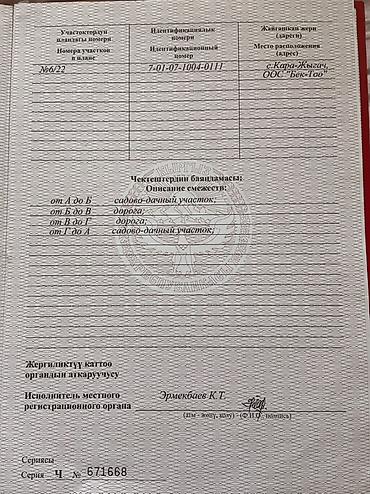 Участоктордун пландагы номери
Номера участков в плане
Идентификациялык номери
Идентификационный номер
Жайгашкан жери (дареги)
Место расположения (адрес)
№6/22
7-01-07-1004-0111
с.Кара-Жыгач, ООО "Бек-Тоо"
Чектештердин баяндамасы:
Описание смежеств:
от А до Б садово-дачный участок;
от Б до В дорога;
от В до Г дорога;
от Г до А садово-дачный участок;
Жергиликтүү каттоо
органдын аткаруучусу
Исполнитель местного
регистрационного органа
Эрмекбаев К.Т.
(аты - жөнү, колу) - (Ф.И.О., подпись)
Сериясы
Серия Ч № 671668